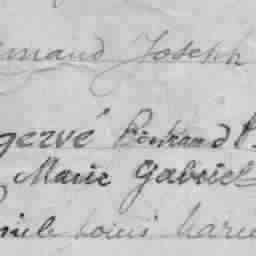 Joseph
gervé Bertrand
Marie Gabriel
Louis Marie